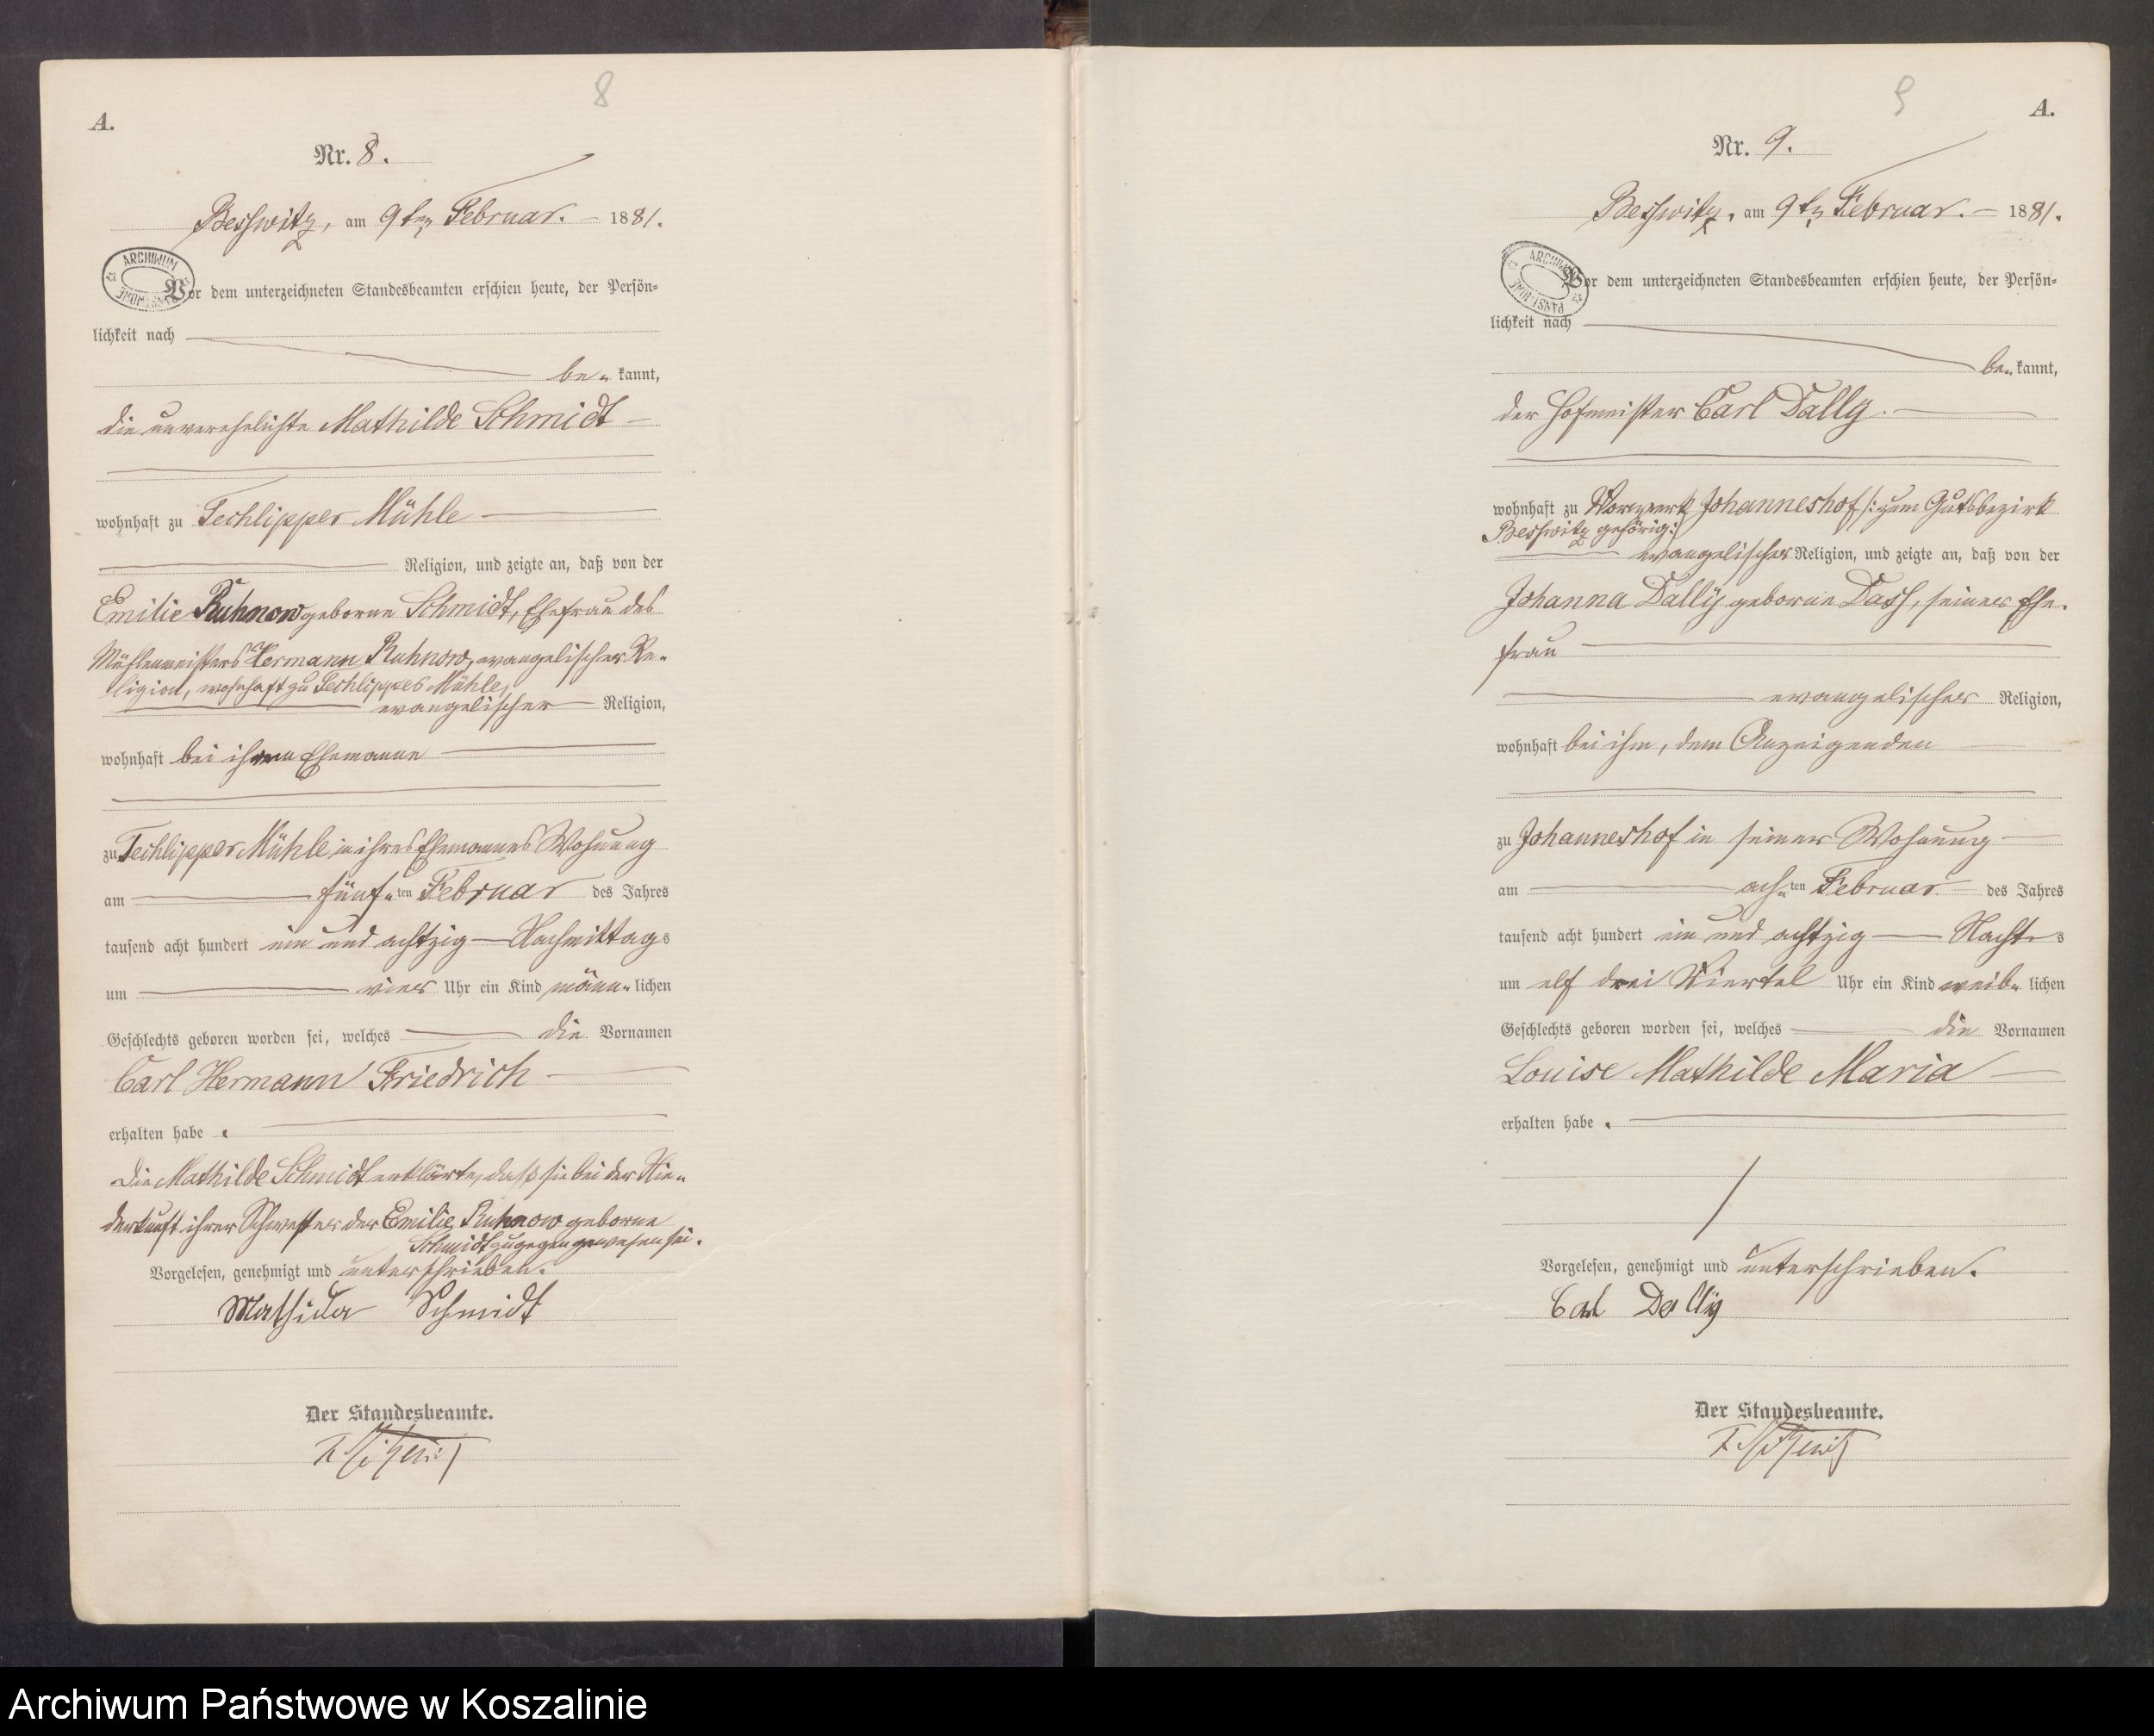 8
A.
Nr. 8.
Beßwitz, am 9ten Februar. 1881.
ARCHIWUM PAŃSTWOWE
Vor dem unterzeichneten Standesbeamten erschien heute, der Persön=
lichkeit nach
be„ kannt,
die unverehelichte Mathilde Schmidt
wohnhaft zu Techlipper Mühle
Religion, und zeigte an, daß von der
Emilie Ruhnow geborne Schmidt, Ehefrau des
Mühlenmeisters Hermann Ruhnow, evangelischer Re„
ligion, wohnhaft zu Techlipper Mühle,
evangelischer Religion,
wohnhaft bei ihrem Ehemanne
zu Techlipper Mühle in ihres Ehemannes Wohnung
am fünf„ten Februar des Jahres
tausend acht hundert ein und achtzig Nachmittags
um vier Uhr ein Kind männ„lichen
Geschlechts geboren worden sei, welches die Vornamen
Carl Hermann Friedrich
erhalten habe.
Die Mathilde Schmidt erklärte, daß sie bei der Nie„
derkunft ihrer Schwester der Emilie Ruhnow geborne
Schmidt zugegen gewesen sei.
Vorgelesen, genehmigt und unterschrieben.
Schmidt
Der Standesbeamte.
9
A.
Nr. 9.
Beßwitz, am 9ten Februar. 1881.
ARCHIWUM PAŃSTWOWE
Vor dem unterzeichneten Standesbeamten erschien heute, der Persön=
lichkeit nach
be„ kannt,
der Hofmeister Carl Dally.
wohnhaft zu Vorwerk Johanneshof /: zum Gutsbezirk
Beßwitz gehörig :/
evangelischer Religion, und zeigte an, daß von der
Johanna Dally geborne Dass, seiner Ehe„
frau
evangelischer Religion,
wohnhaft bei ihm, dem Anzeigenden
zu Johanneshof in seiner Wohnung
am ach„ten Februar des Jahres
tausend acht hundert ein und achtzig Nachts
um elf drei Viertel Uhr ein Kind weib„ lichen
Geschlechts geboren worden sei, welches die Vornamen
Louise Mathilde Maria
erhalten habe.
Vorgelesen, genehmigt und unterschrieben.
Carl Dally
Der Standesbeamte.
Archiwum Państwowe w Koszalinie